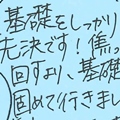 基礎をしっかり
先決です!焦っ
回すより、基礎
固めて行きまし